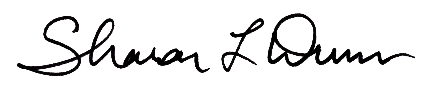 Sharon L Dunn